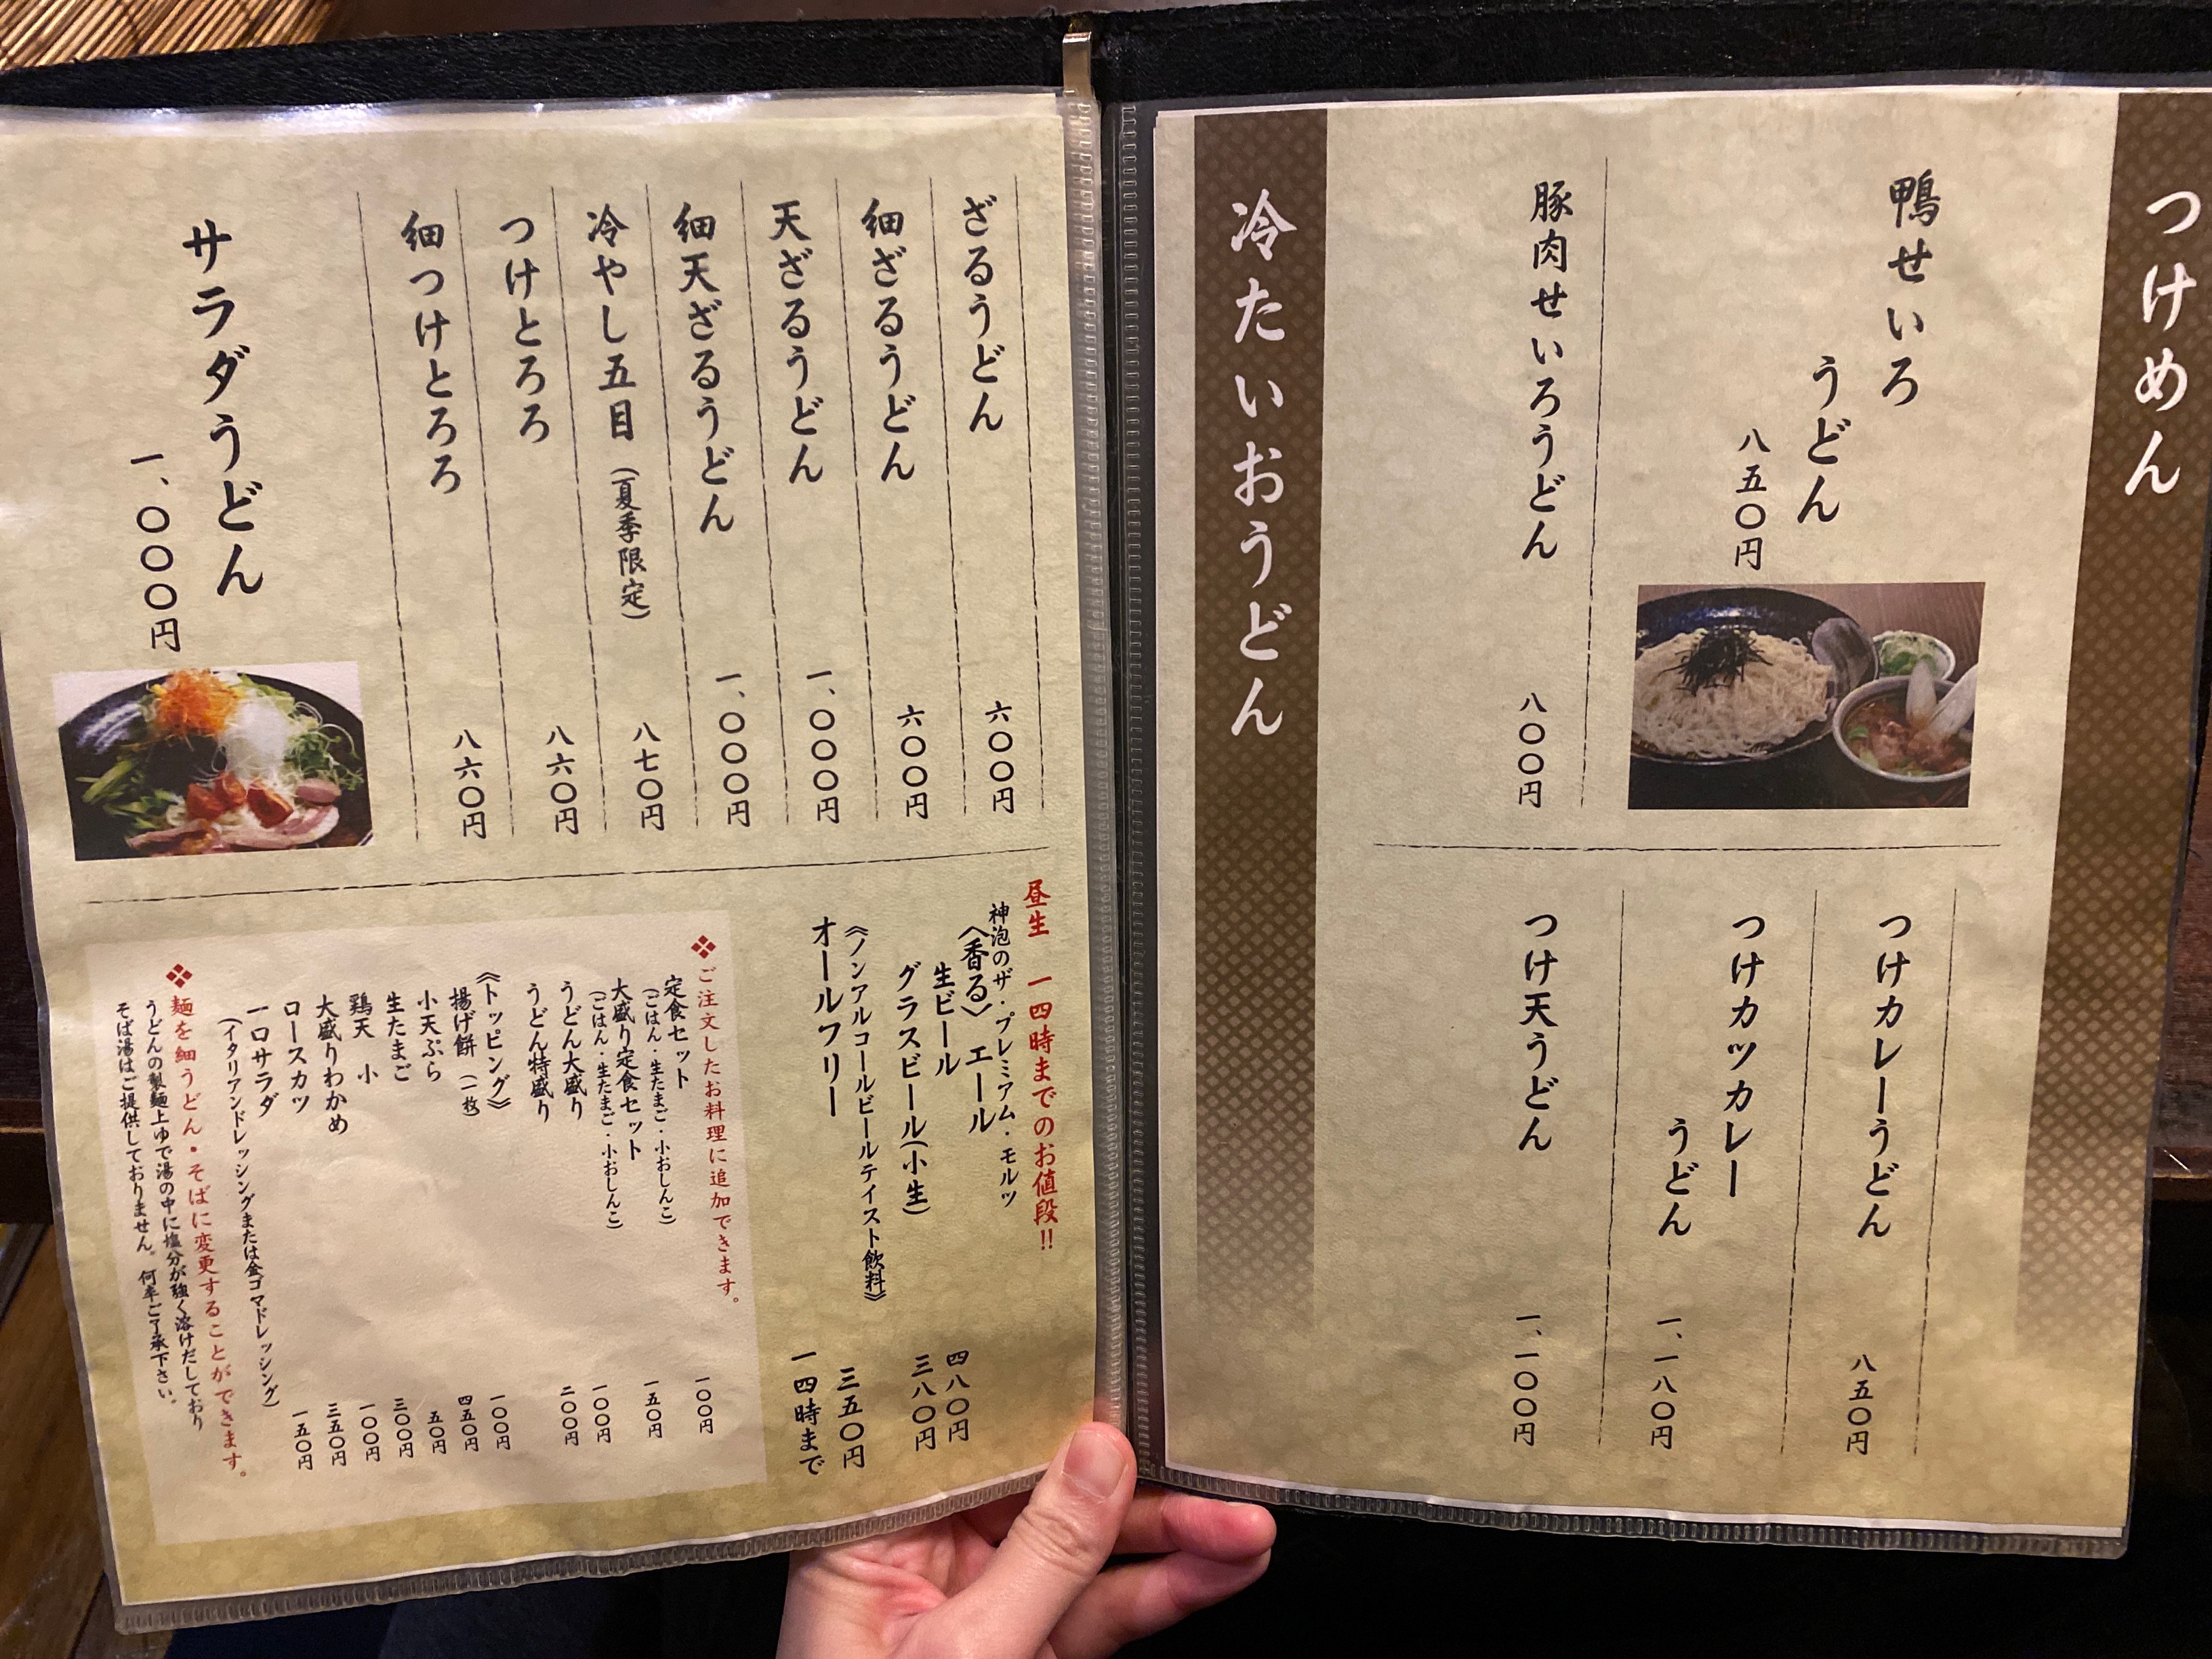 つけめん
鴨せいろ
うどん
八五〇円
豚肉せいろうどん
八〇〇円
つけカレーうどん
八五〇円
つけカツカレー
うどん
一、一八〇円
つけ天うどん
一、一〇〇円
冷たいおうどん
ざるうどん
六〇〇円
細ざるうどん
六〇〇円
天ざるうどん
一、〇〇〇円
細天ざるうどん
一、〇〇〇円
冷やし五目(夏季限定)
八七〇円
つけとろろ
八六〇円
細つけとろろ
八六〇円
サラダうどん
一、〇〇〇円
昼生 一四時までのお値段!!
神泡のザ・プレミアム・モルツ
〈香る〉エール
生ビール
四八〇円
グラスビール(小生)
三八〇円
《ノンアルコールビールテイスト飲料》
オールフリー
三五〇円
一四時まで
❖ご注文したお料理に追加できます。
定食セット
一〇〇円
(ごはん・生たまご・小おしんこ)
大盛り定食セット
一五〇円
(ごはん・生たまご・小おしんこ)
うどん大盛り
一〇〇円
うどん特盛り
二〇〇円
《トッピング》
揚げ餅(一枚)
一〇〇円
小天ぷら
四五〇円
生たまご
五〇円
鶏天 小
三〇〇円
大盛りわかめ
一〇〇円
ロースカツ
三五〇円
一口サラダ
一五〇円
(イタリアンドレッシングまたは金ゴマドレッシング)
❖麺を細うどん・そばに変更することができます。
うどんの製麺上ゆで湯の中に塩分が強く溶けだしており
そば湯はご提供しておりません。何卒ご了承下さい。